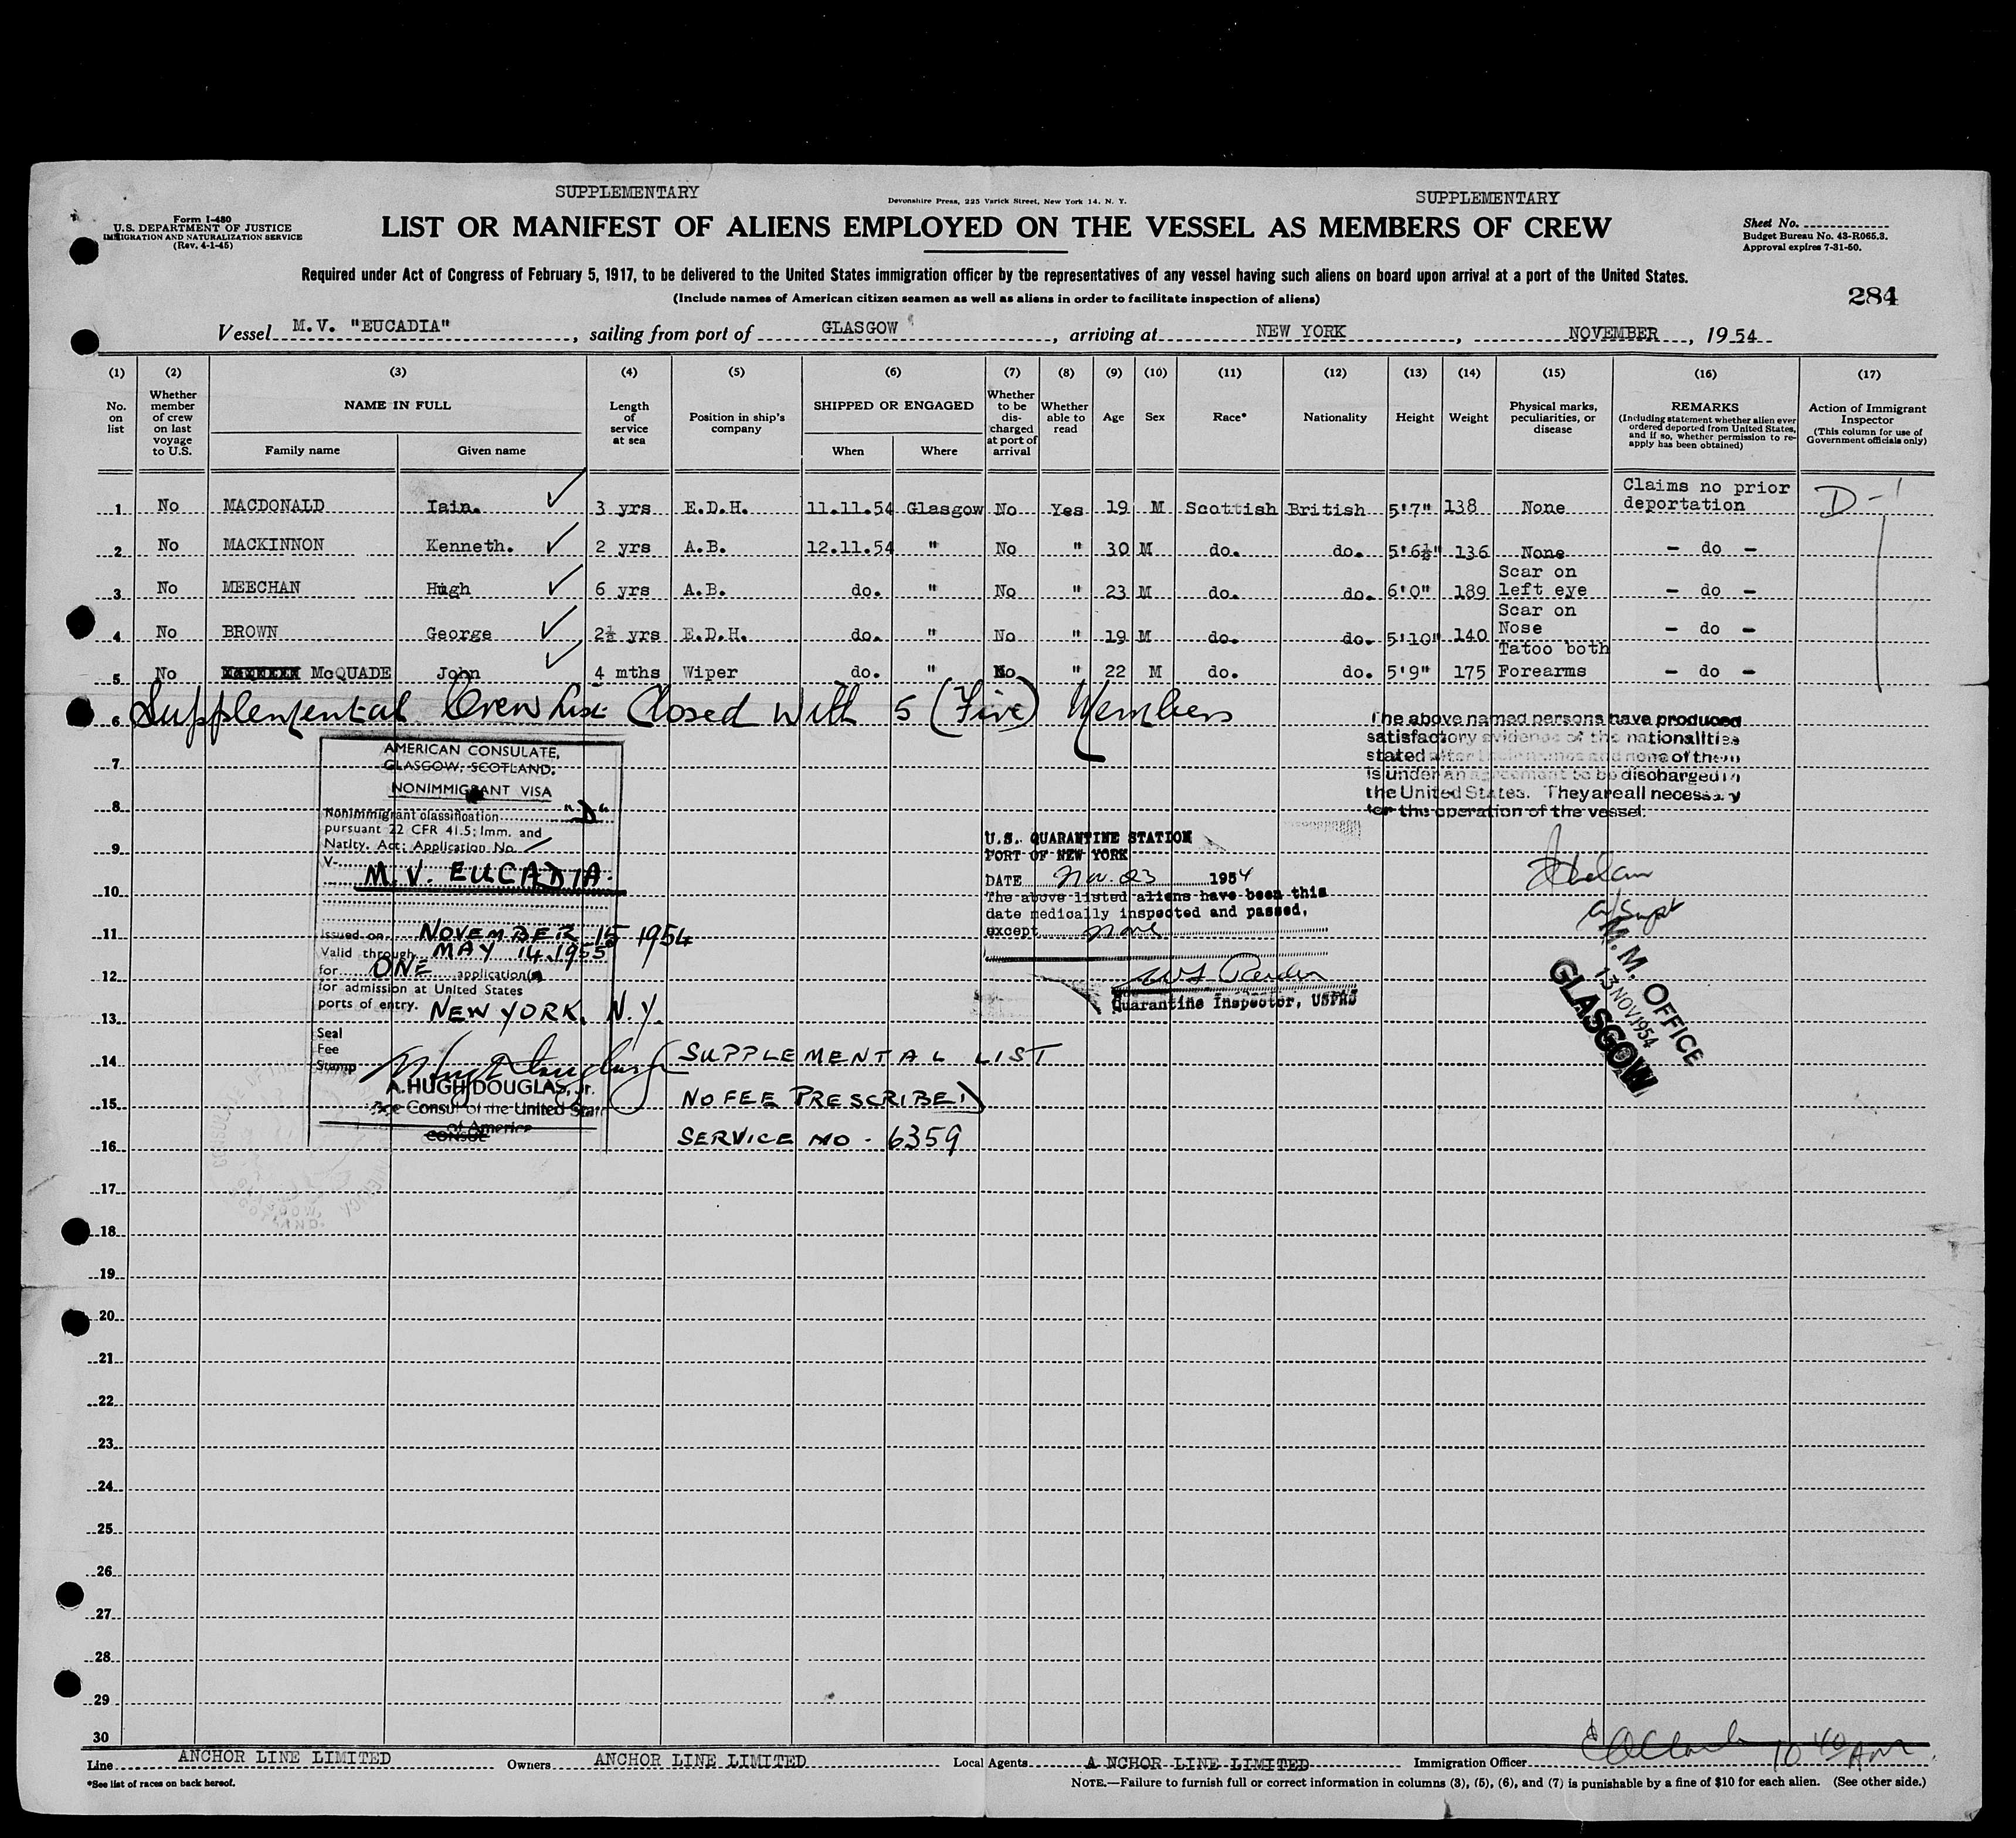 SUPPLEMENTARY
SUPPLEMENTARY
Devonshire Press, 225 Varick Street, New York 14, N. Y.
Form I-480
U.S. DEPARTMENT OF JUSTICE
IMMIGRATION AND NATURALIZATION SERVICE
(Rev. 4-1-45)
LIST OR MANIFEST OF ALIENS EMPLOYED ON THE VESSEL AS MEMBERS OF CREW
Sheet No.
Budget Bureau No. 43-R065.3.
Approval expires 7-31-50.
Required under Act of Congress of February 5, 1917, to be delivered to the United States immigration officer by the representatives of any vessel having such aliens on board upon arrival at a port of the United States.
(Include names of American citizen seamen as well as aliens in order to facilitate inspection of aliens)
284
Vessel M.V. "EUCADIA", sailing from port of GLASGOW, arriving at NEW YORK, NOVEMBER, 1954
(1) (2) (3) (4) (5) (6) (7) (8) (9) (10) (11) (12) (13) (14) (15) (16) (17)
No. on list
Whether member of crew on last voyage to U.S.
NAME IN FULL
Family name
Given name
Length of service at sea
Position in ship's company
SHIPPED OR ENGAGED
When
Where
Whether to be discharged at port of arrival
Whether able to read
Age
Sex
Race*
Nationality
Height
Weight
Physical marks, peculiarities, or disease
REMARKS
(Including statement whether alien ever ordered deported from United States, and if so, whether permission to re-apply has been obtained)
Action of Immigrant Inspector
(This column for use of Government officials only)
1 No MACDONALD Iain. 3 yrs E.D.H. 11.11.54 Glasgow No Yes 19 M Scottish British 5'7" 138 None Claims no prior deportation D-1
2 No MACKINNON Kenneth. 2 yrs A.B. 12.11.54 " No " 30 M do. do. 5'6½" 136 None - do -
3 No MEECHAN Hugh 6 yrs A.B. do. " No " 23 M do. do. 6'0" 189 Scar on left eye - do -
4 No BROWN George 2½ yrs E.D.H. do. " No " 19 M do. do. 5'10" 140 Scar on Nose - do -
5 No McQUADE John 4 mths Wiper do. " No " 22 M do. do. 5'9" 175 Tatoo both Forearms - do -
6 Supplemental Crew List Closed with 5 (Five) Members
The above named persons have produced
satisfactory evidence of the nationalities
stated after their names and none of them
is under an agreement to be discharged in
the United States. They are all necessary
for the operation of the vessel.
AMERICAN CONSULATE,
GLASGOW, SCOTLAND.
NONIMMIGRANT VISA
Nonimmigrant classification "D"
pursuant 22 CFR 41.5; Imm. and
Natlty. Act; Application No.
V-
M.V. EUCADIA.
Issued on NOVEMBER 15 1954
Valid through MAY 14, 1955
for ONE application
for admission at United States
ports of entry. NEW YORK, N.Y.
Seal
Fee
Stamp
A. HUGH DOUGLAS, Jr.
Vice Consul of the United States
of America
CONSUL
SUPPLEMENTAL LIST
NO FEE PRESCRIBED
SERVICE NO. 6359
U.S. QUARANTINE STATION
PORT OF NEW YORK
DATE Nov. 23 1954
The above listed aliens have been this
date medically inspected and passed,
except none
Quarantine Inspector, USPHS
a/Supt
M.M. OFFICE
13 NOV 1954
GLASGOW
7
8
9
10
11
12
13
14
15
16
17
18
19
20
21
22
23
24
25
26
27
28
29
30
Line ANCHOR LINE LIMITED Owners ANCHOR LINE LIMITED Local Agents A NCHOR LINE LIMITED Immigration Officer 10 40 AM
*See list of races on back hereof.
NOTE.—Failure to furnish full or correct information in columns (3), (5), (6), and (7) is punishable by a fine of $10 for each alien. (See other side.)